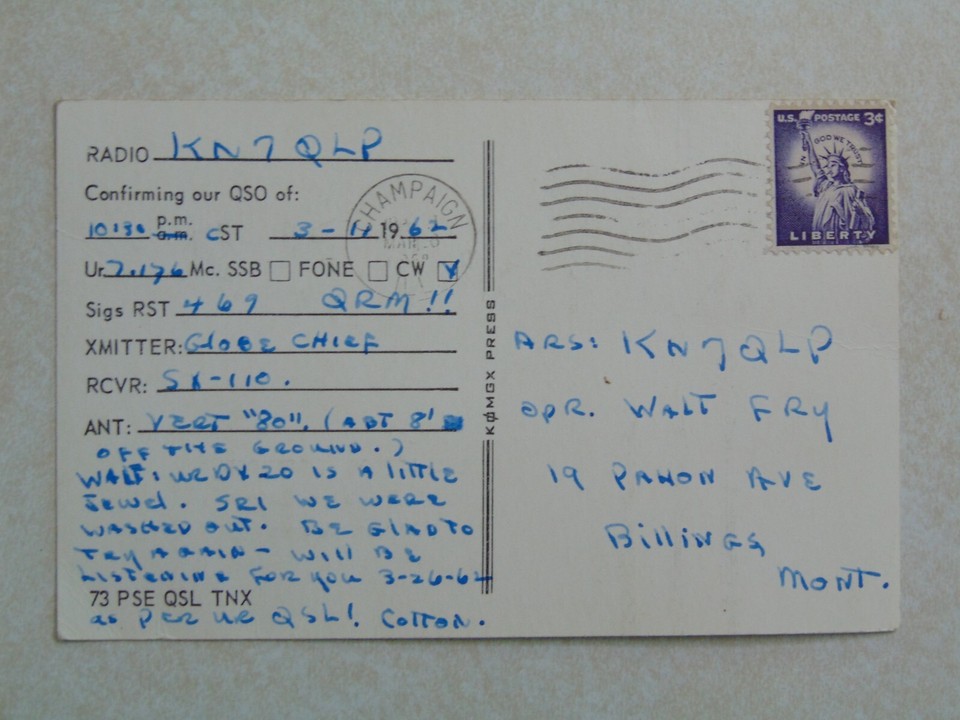 RADIO KN7QLP
Confirming our QSO of:
10:30 p.m. a.m. CST 3-11 1962
Ur 7.176 Mc. SSB FONE CW
Sigs RST 469 QRM!!
XMITTER: GLOBE CHIEF
RCVR: SX-110.
ANT: VERT "80". (ABT 8'
OFF THE GROUND.)
WALT: UR DX20 IS A LITTLE
JEWEL. SRI WE WERE
WASHED OUT. BE GLAD TO
TRY AGAIN - WILL BE
LISTENING FOR YOU 3-26-62
73 PSE QSL TNX
as PER UR QSL! COTTON.
KØMGX PRESS
CHAMPAIGN
U.S. POSTAGE 3¢
IN GOD WE TRUST
LIBERTY
ARS: KN7QLP
OPR. WALT FRY
19 PAHON AVE
BILLINGS,
MONT.